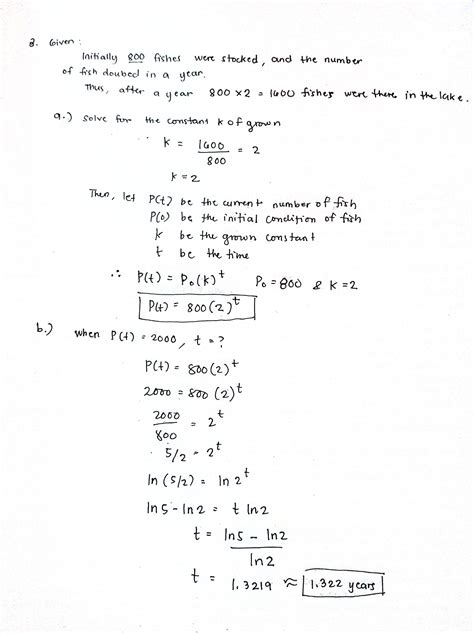 3. Given :
Initially 800 fishes were stocked, and the number
of fish doubed in a year.
Thus, after a year 800 x 2 = 1600 fishes were there in the lake.
a.) Solve for the constant k of grown
k = 1600/800 = 2
k = 2
Then, let P(t) be the current number of fish
P(0) be the initial condition of fish
k be the grown constant
t be the time
∴ P(t) = P₀(k)^t P₀ = 800 & k = 2
P(t) = 800(2)^t
b.) when P(t) = 2000, t = ?
P(t) = 800(2)^t
2000 = 800 (2)^t
2000/800 = 2^t
5/2 = 2^t
ln (5/2) = ln 2^t
ln 5 - ln 2 = t ln 2
t = ln 5 - ln 2 / ln 2
t = 1.3219 ≈ 1.322 years